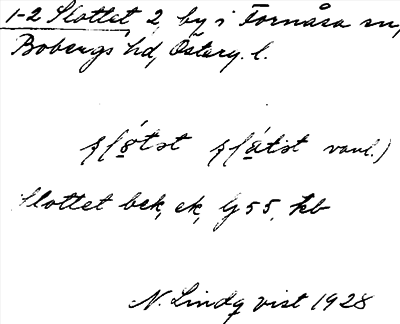 1-2 Slottet 2, by i Fornåsa sn,
Bobergs hd, Österg. l.
vanl.)
Slottet bek, ek, G 55, kb
N. Lindqvist 1928